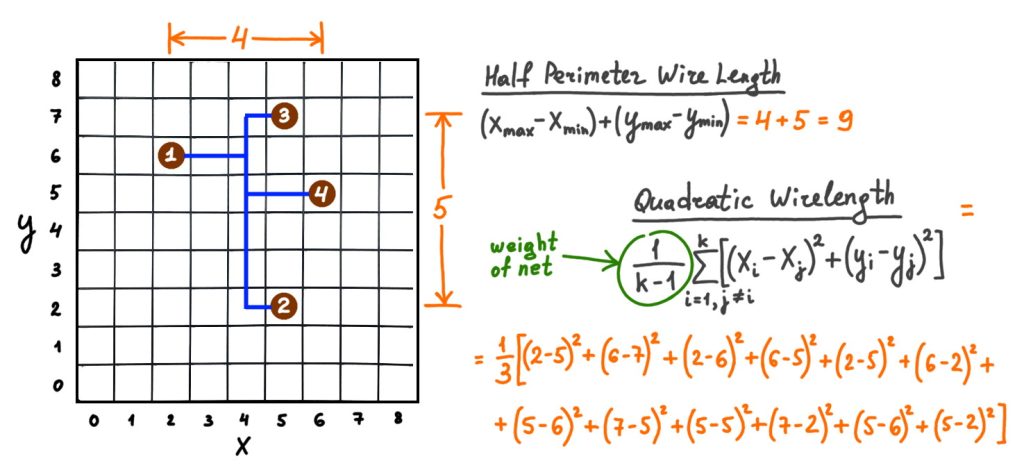 4
8
7
6
5
4
3
2
1
0
y
0 1 2 3 4 5 6 7 8
X
3
1
4
2
5
Half Perimeter Wire Length
(Xmax-Xmin)+(ymax-ymin) = 4+5 = 9
Quadratic Wirelength =
weight
of net
1/(k-1) ∑ k i=1, j≠i [(xi-xj)²+(yi-yj)²]
= 1/3 [(2-5)²+(6-7)²+(2-6)²+(6-5)²+(2-5)²+(6-2)²+
+(5-6)²+(7-5)²+(5-5)²+(7-2)²+(5-6)²+(5-2)²]